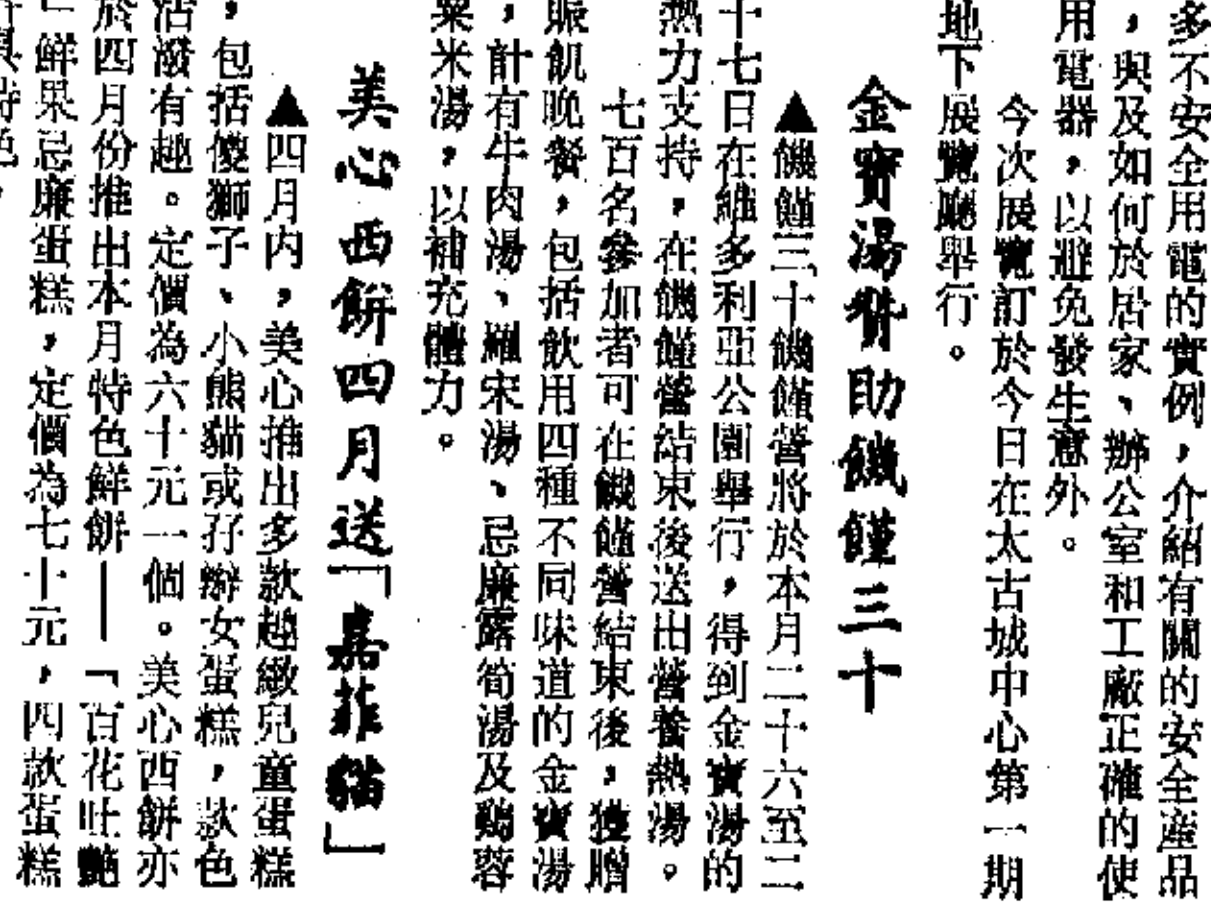 多不安全用電的實例，介紹有關的安全產品
，與及如何於居家、辦公室和工廠正確的使
用電器，以避免發生意外。
今次展覽訂於今日在太古城中心第一期
地下展覽廳舉行。
金寶湯贊助饑饉三十
▲饑饉三十饑饉營將於本月二十六至二
十七日在維多利亞公園舉行，得到金寶湯的
熱力支持，在饑饉營結束後送出營養熱湯。
七百名參加者可在饑饉營結束後，獲贈
賑飢晚餐，包括飲用四種不同味道的金寶湯
，計有牛肉湯、羅宋湯、忌廉露筍湯及鷄蓉
粟米湯，以補充體力。
美心西餅四月送「嘉菲貓」
▲四月內，美心推出多款趣緻兒童蛋糕
，包括傻獅子、小熊貓或孖辮女蛋糕，款色
活潑有趣。定價為六十元一個。美心西餅亦
於四月份推出本月特色鮮餅——「百花吐艷
」鮮果忌廉蛋糕，定價為七十元，四款蛋糕